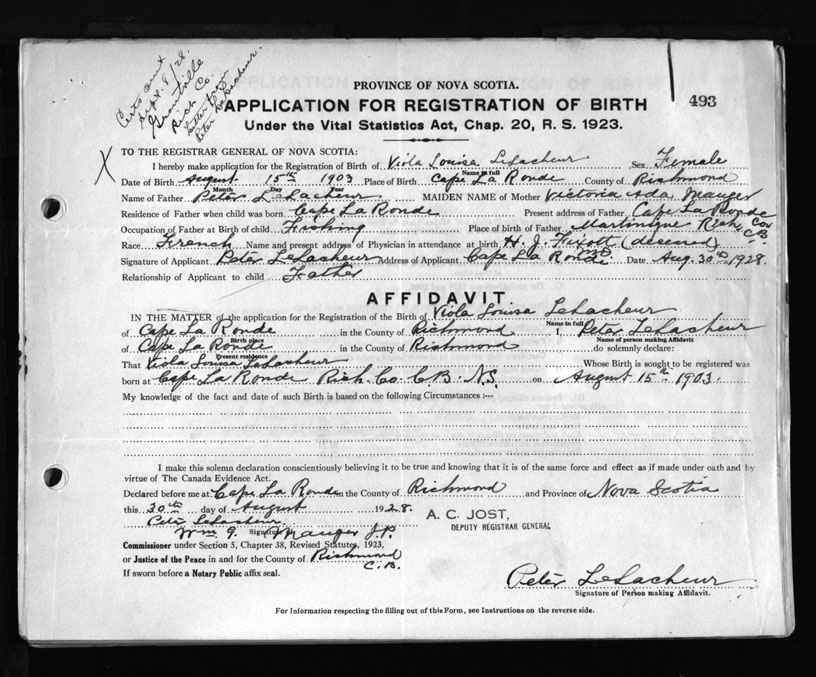 Certs sent
Sept. 8/28.
Grantville
Rich Co.
Peter LeLacheur.
PROVINCE OF NOVA SCOTIA.
APPLICATION FOR REGISTRATION OF BIRTH
493
Under the Vital Statistics Act, Chap. 20, R. S. 1923.
X
TO THE REGISTRAR GENERAL OF NOVA SCOTIA:
I hereby make application for the Registration of Birth of Viola Louisa LeLacheur Sex Female
Name in full
Date of Birth August 15th 1903 Place of Birth Cape La Ronde County of Richmond
Month Day Year
Name of Father Peter LeLacheur MAIDEN NAME of Mother Victoria Ada Mauger
Residence of Father when child was born Cape La Ronde Present address of Father Cape La Ronde
Occupation of Father at Birth of child Fishing Place of birth of Father Martinique Rich. Co. C.B.
Race French Name and present address of Physician in attendance at birth H. J. Fixott (deceased)
Signature of Applicant Peter LeLacheur Address of Applicant Cape La Ronde Date Aug. 30th 1928.
Relationship of Applicant to child Father
AFFIDAVIT.
IN THE MATTER of the application for the Registration of the Birth of Viola Louisa LeLacheur
Name in full
of Cape La Ronde in the County of Richmond I, Peter LeLacheur
Birth place Name of person making Affidavit
of Cape La Ronde in the County of Richmond do solemnly declare:
Present residence
That Viola Louisa LeLacheur Whose Birth is sought to be registered was
born at Cape La Ronde Rich. Co. C.B. N.S. on August 15th 1903.
My knowledge of the fact and date of such Birth is based on the following Circumstances :—
I make this solemn declaration conscientiously believing it to be true and knowing that it is of the same force and effect as if made under oath and by
virtue of The Canada Evidence Act.
Declared before me at Cape La Ronde in the County of Richmond and Province of Nova Scotia
this 30th day of August 1928.
A. C. JOST,
DEPUTY REGISTRAR GENERAL
Peter LeLacheur
Wm G. Mauger J.P.
Commissioner under Section 5, Chapter 38, Revised Statutes, 1923,
or Justice of the Peace in and for the County of Richmond
C.B.
If sworn before a Notary Public affix seal.
Peter LeLacheur
Signature of Person making Affidavit.
For Information respecting the filling out of this Form, see Instructions on the reverse side.